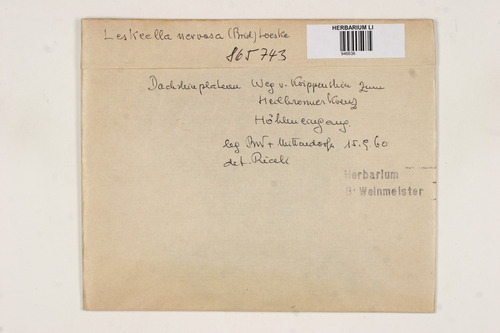 Leskeella nervosa (Brid) Loeske
HERBARIUM LI
865743
Dachsteinplateau Weg v. Krippenstein zum
Heilbronner Kreuz
Höhleneingang
leg BW + Mittendorfer 15.9.60
det. Ricek
Herbarium
Br Weinmeister